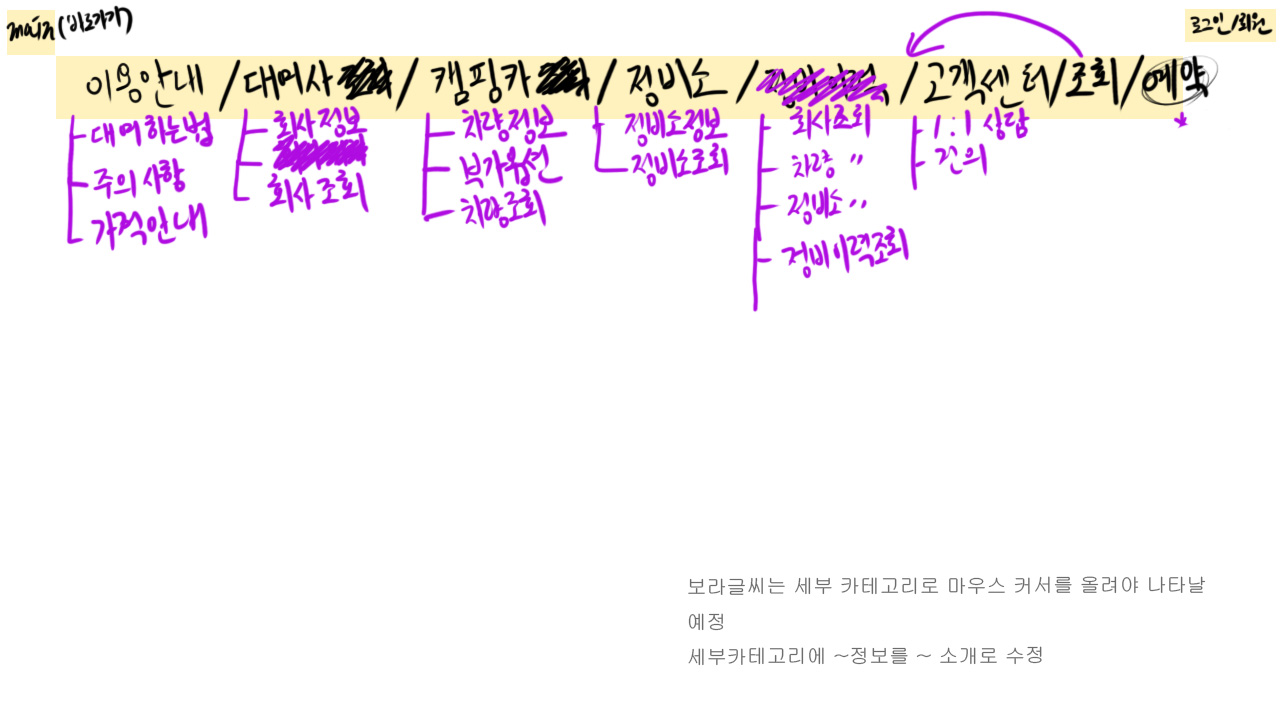 main (바로가기)
로그인/회원
이용안내 / 대여사 / 캠핑카 / 정비소 / / 고객센터 / 조회 / 예약
대여하는법
주의사항
가격안내
회사정보
회사조회
차량정보
부가옵션
차량조회
정비소정보
정비소조회
회사조회
차량 〃
정비소 〃
정비이력조회
1:1 상담
건의
보라글씨는 세부 카테고리로 마우스 커서를 올려야 나타날
예정
세부카테고리에 ~정보를 ~ 소개로 수정